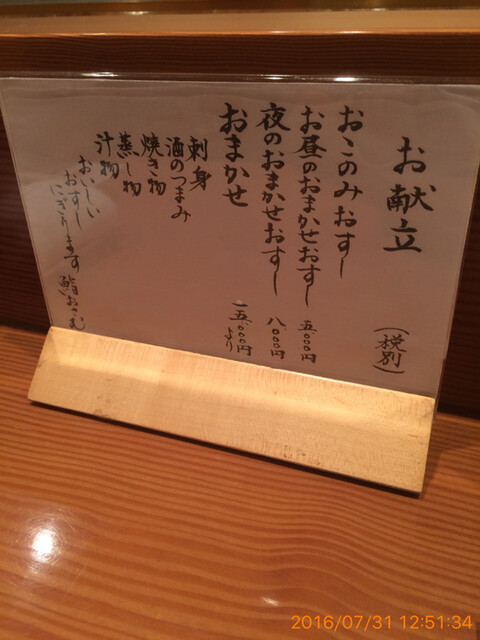 お献立
(税別)
おこのみおすし
お昼のおまかせおすし 五.〇〇〇円
夜のおまかせおすし 八.〇〇〇円
おまかせ 一五.〇〇〇円より
刺身
酒のつまみ
焼き物
蒸し物
汁物
おいしい
おすし
にぎります 鮨おさむ
2016/07/31 12:51:34